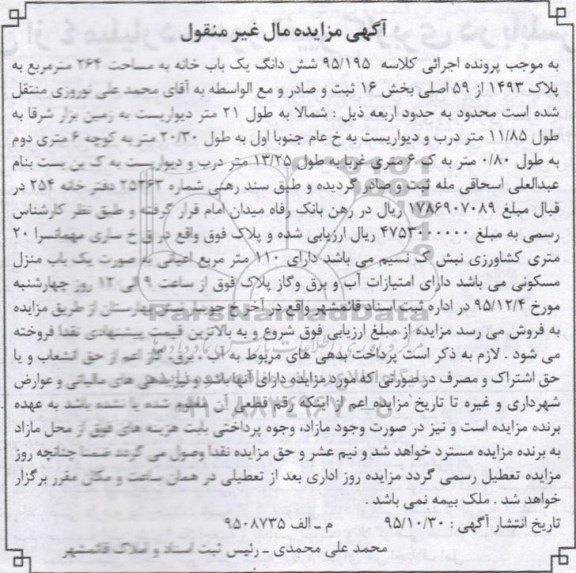 آگهی مزایده مال غیر منقول
به موجب پرونده اجرائی کلاسه ۹۵/۱۹۵ شش دانگ یک باب خانه به مساحت ۲۶۴ مترمربع به
پلاک ۱۴۹۳ از ۵۹ اصلی بخش ۱۶ ثبت و صادر و مع الواسطه به آقای محمد علی نوروزی منتقل
شده است محدود به حدود اربعه ذیل : شمالا به طول ۲۱ متر دیواریست به زمین بزار شرقا به
طول ۱۱/۸۵ متر درب و دیواریست به خ عام جنوبا اول به طول ۲۰/۳۰ متر به کوچه ۶ متری دوم
به طول ۰/۸۰ متر به ک ۶ متری غربا به طول ۱۳/۲۵ متر درب و دیواریست به ک بن بست بنام
عبدالعلی اسحاقی مله ثبت و صادر گردیده و طبق سند رهنی شماره ۲۵۳۶۳ دفتر خانه ۲۵۴ در
قبال مبلغ ۱۷۸۶۹۰۷۰۸۹ ریال در رهن بانک رفاه میدان امام قرار گرفته و طبق نظر کارشناس
رسمی به مبلغ ۴۷۵۳۴۰۰۰۰۰ ریال ارزیابی شده و پلاک فوق واقع در ق خ ساری مهمانسرا ۲۰
متری کشاورزی نبش ک نسیم می باشد دارای ۱۱۰ متر مربع اعیانی به صورت یک باب منزل
مسکونی می باشد دارای امتیازات آب و برق وگاز پلاک فوق از ساعت ۹ الی ۱۲ روز چهارشنبه
مورخ ۹۵/۱۲/۴ در اداره ثبت اسناد قائمشهر واقع در آخر خ جویبار بهارستان از طریق مزایده
به فروش می رسد مزایده از مبلغ ارزیابی فوق شروع و به بالاترین قیمت پیشنهادی نقدا فروخته
می شود . لازم به ذکر است پرداخت بدهی های مربوط به آب ، برق، گاز اعم از حق انشعاب و یا
حق اشتراک و مصرف در صورتی که مورد مزایده دارای آنها باشد و نیز بدهی های مالیاتی و عوارض
شهرداری و غیره تا تاریخ مزایده اعم از اینکه رقم قطعی آن معلوم شده یا نشده باشد به عهده
برنده مزایده است و نیز در صورت وجود مازاد، وجوه پرداختی بابت هزینه های فوق از محل مازاد
به برنده مزایده مسترد خواهد شد و نیم عشر و حق مزایده نقدا وصول می گردد ضمنا چنانچه روز
مزایده تعطیل رسمی گردد مزایده روز اداری بعد از تعطیلی در همان ساعت و مکان مقرر برگزار
خواهد شد . ملک بیمه نمی باشد .
تاریخ انتشار آگهی : ۹۵/۱۰/۳۰ م ـ الف ۹۵۰۸۷۳۵
محمد علی محمدی ـ رئیس ثبت اسناد و املاک قائمشهر